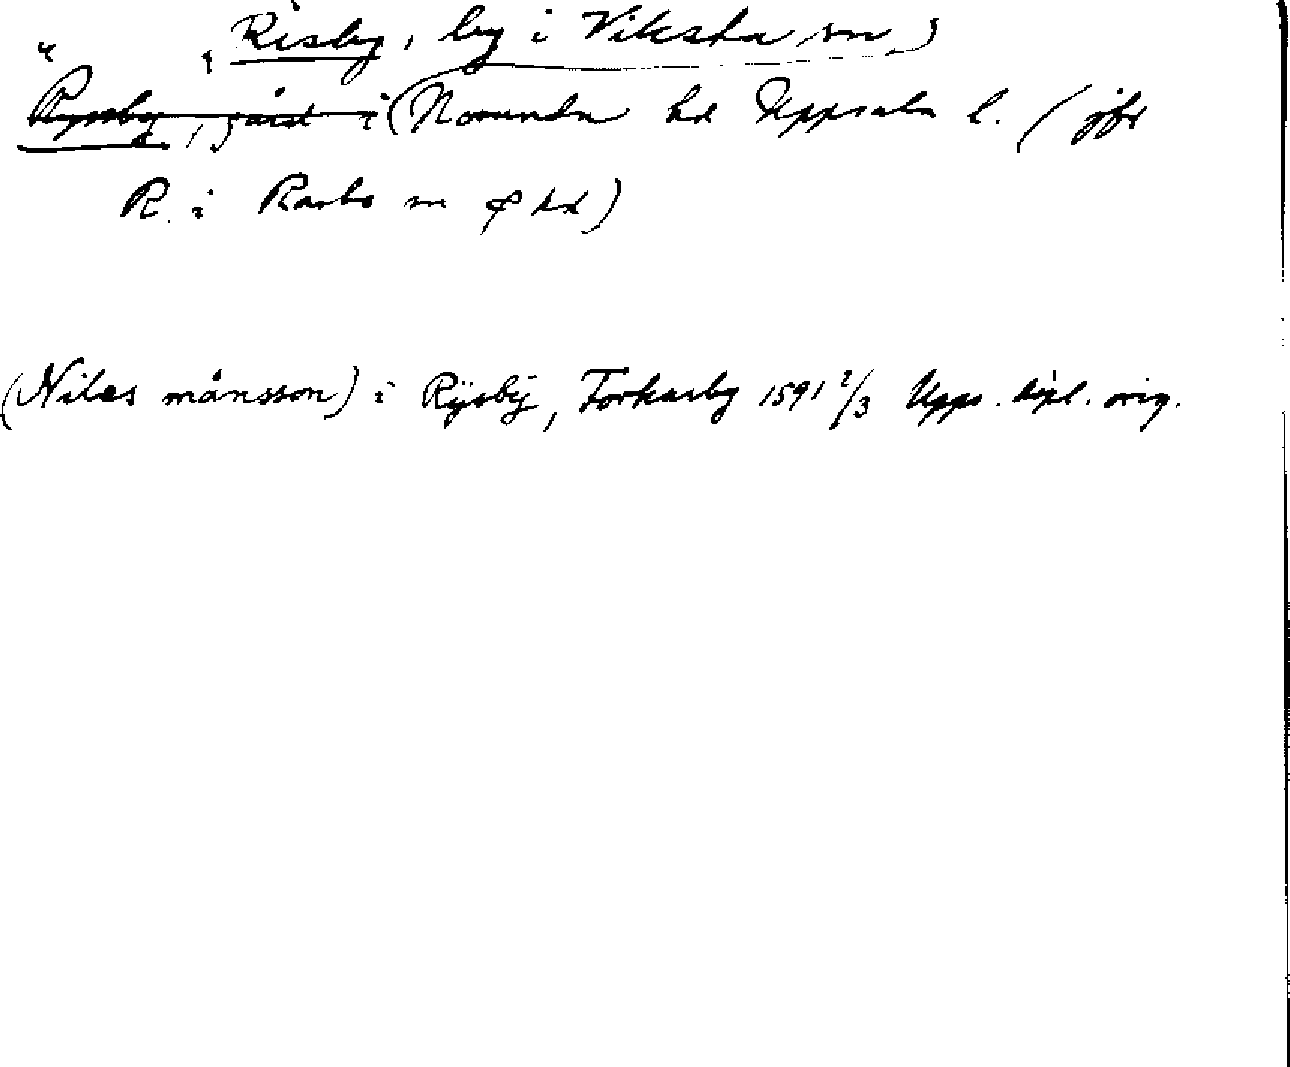 " , Risby, by i Viksta sn,
Ryssby, gård i (Norunda hd Uppsala l. (jfr
R. i Rasbo sn & hd)
(Nilas månsson) i Rÿsbÿ, Torkarby 1591 2/3 Upps. dipl. orig.